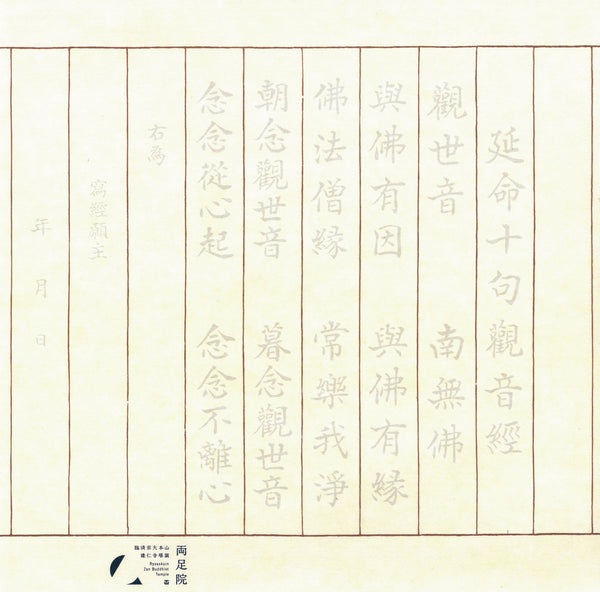 延命十句觀音經
觀世音 南無佛
與佛有因 與佛有緣
佛法僧緣 常樂我淨
朝念觀世音 暮念觀世音
念念從心起 念念不離心
右為
寫經願主
年 月 日
両足院
臨済宗大本山
建仁寺塔頭
Ryosokuin
Zen Buddhist
Temple